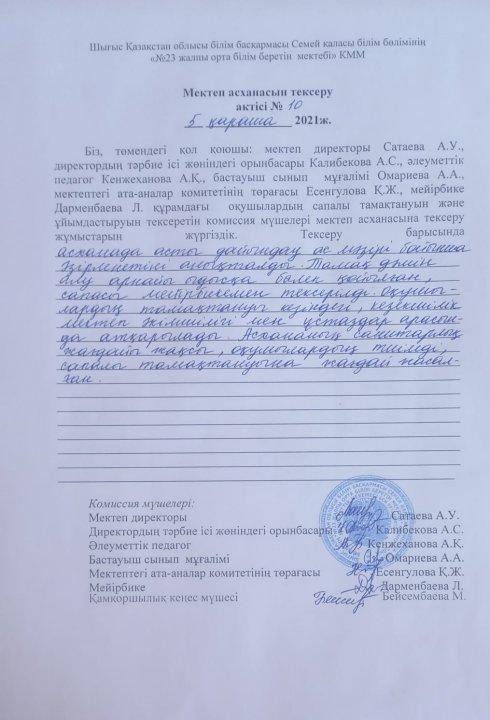 Шығыс Қазақстан облысы білім басқармасы Семей қаласы білім бөлімінің
«№23 жалпы орта білім беретін мектебі» КММ
Мектеп асханасын тексеру
актісі № 10
5 қараша 2021ж.
Біз, төмендегі қол қоюшы: мектеп директоры Сатаева А.У.,
директордың тәрбие ісі жөніндегі орынбасары Калибекова А.С., әлеуметтік
педагог Кенжеханова А.Қ., бастауыш сынып мұғалімі Омариева А.А.,
мектептегі ата-аналар комитетінің төрағасы Есенгулова Қ.Ж., мейірбике
Дарменбаева Л. құрамдағы оқушылардың сапалы тамақтануын және
ұйымдастыруын тексеретін комиссия мүшелері мектеп асханасына тексеру
жұмыстарын жүргіздік. Тексеру барысында
асханада асты дайындау ас мәзірі бойынша
әзірленетіні анықталды. Тамақ дәмін
алу арнайы ыдысқа бөлек қойылған,
сапасы мейірбикемен тексерілді. Оқушы-
лардың тамақтануы кезінде, кезекшілік
мектеп әкімшілігі мен ұстаздар арасын-
да атқарылады. Асхананың санитарлық
жағдайы жақсы, оқушылардың тиімді,
сапалы тамақтануына жағдай жасал-
ған.
Комиссия мүшелері:
Мектеп директоры Сатаева А.У.
Директордың тәрбие ісі жөніндегі орынбасары Калибекова А.С.
Әлеуметтік педагог Кенжеханова А.Қ.
Бастауыш сынып мұғалімі Омариева А.А.
Мектептегі ата-аналар комитетінің төрағасы Есенгулова Қ.Ж.
Мейірбике Дарменбаева Л.
Қамқоршылық кеңес мүшесі Бейсембаева М.